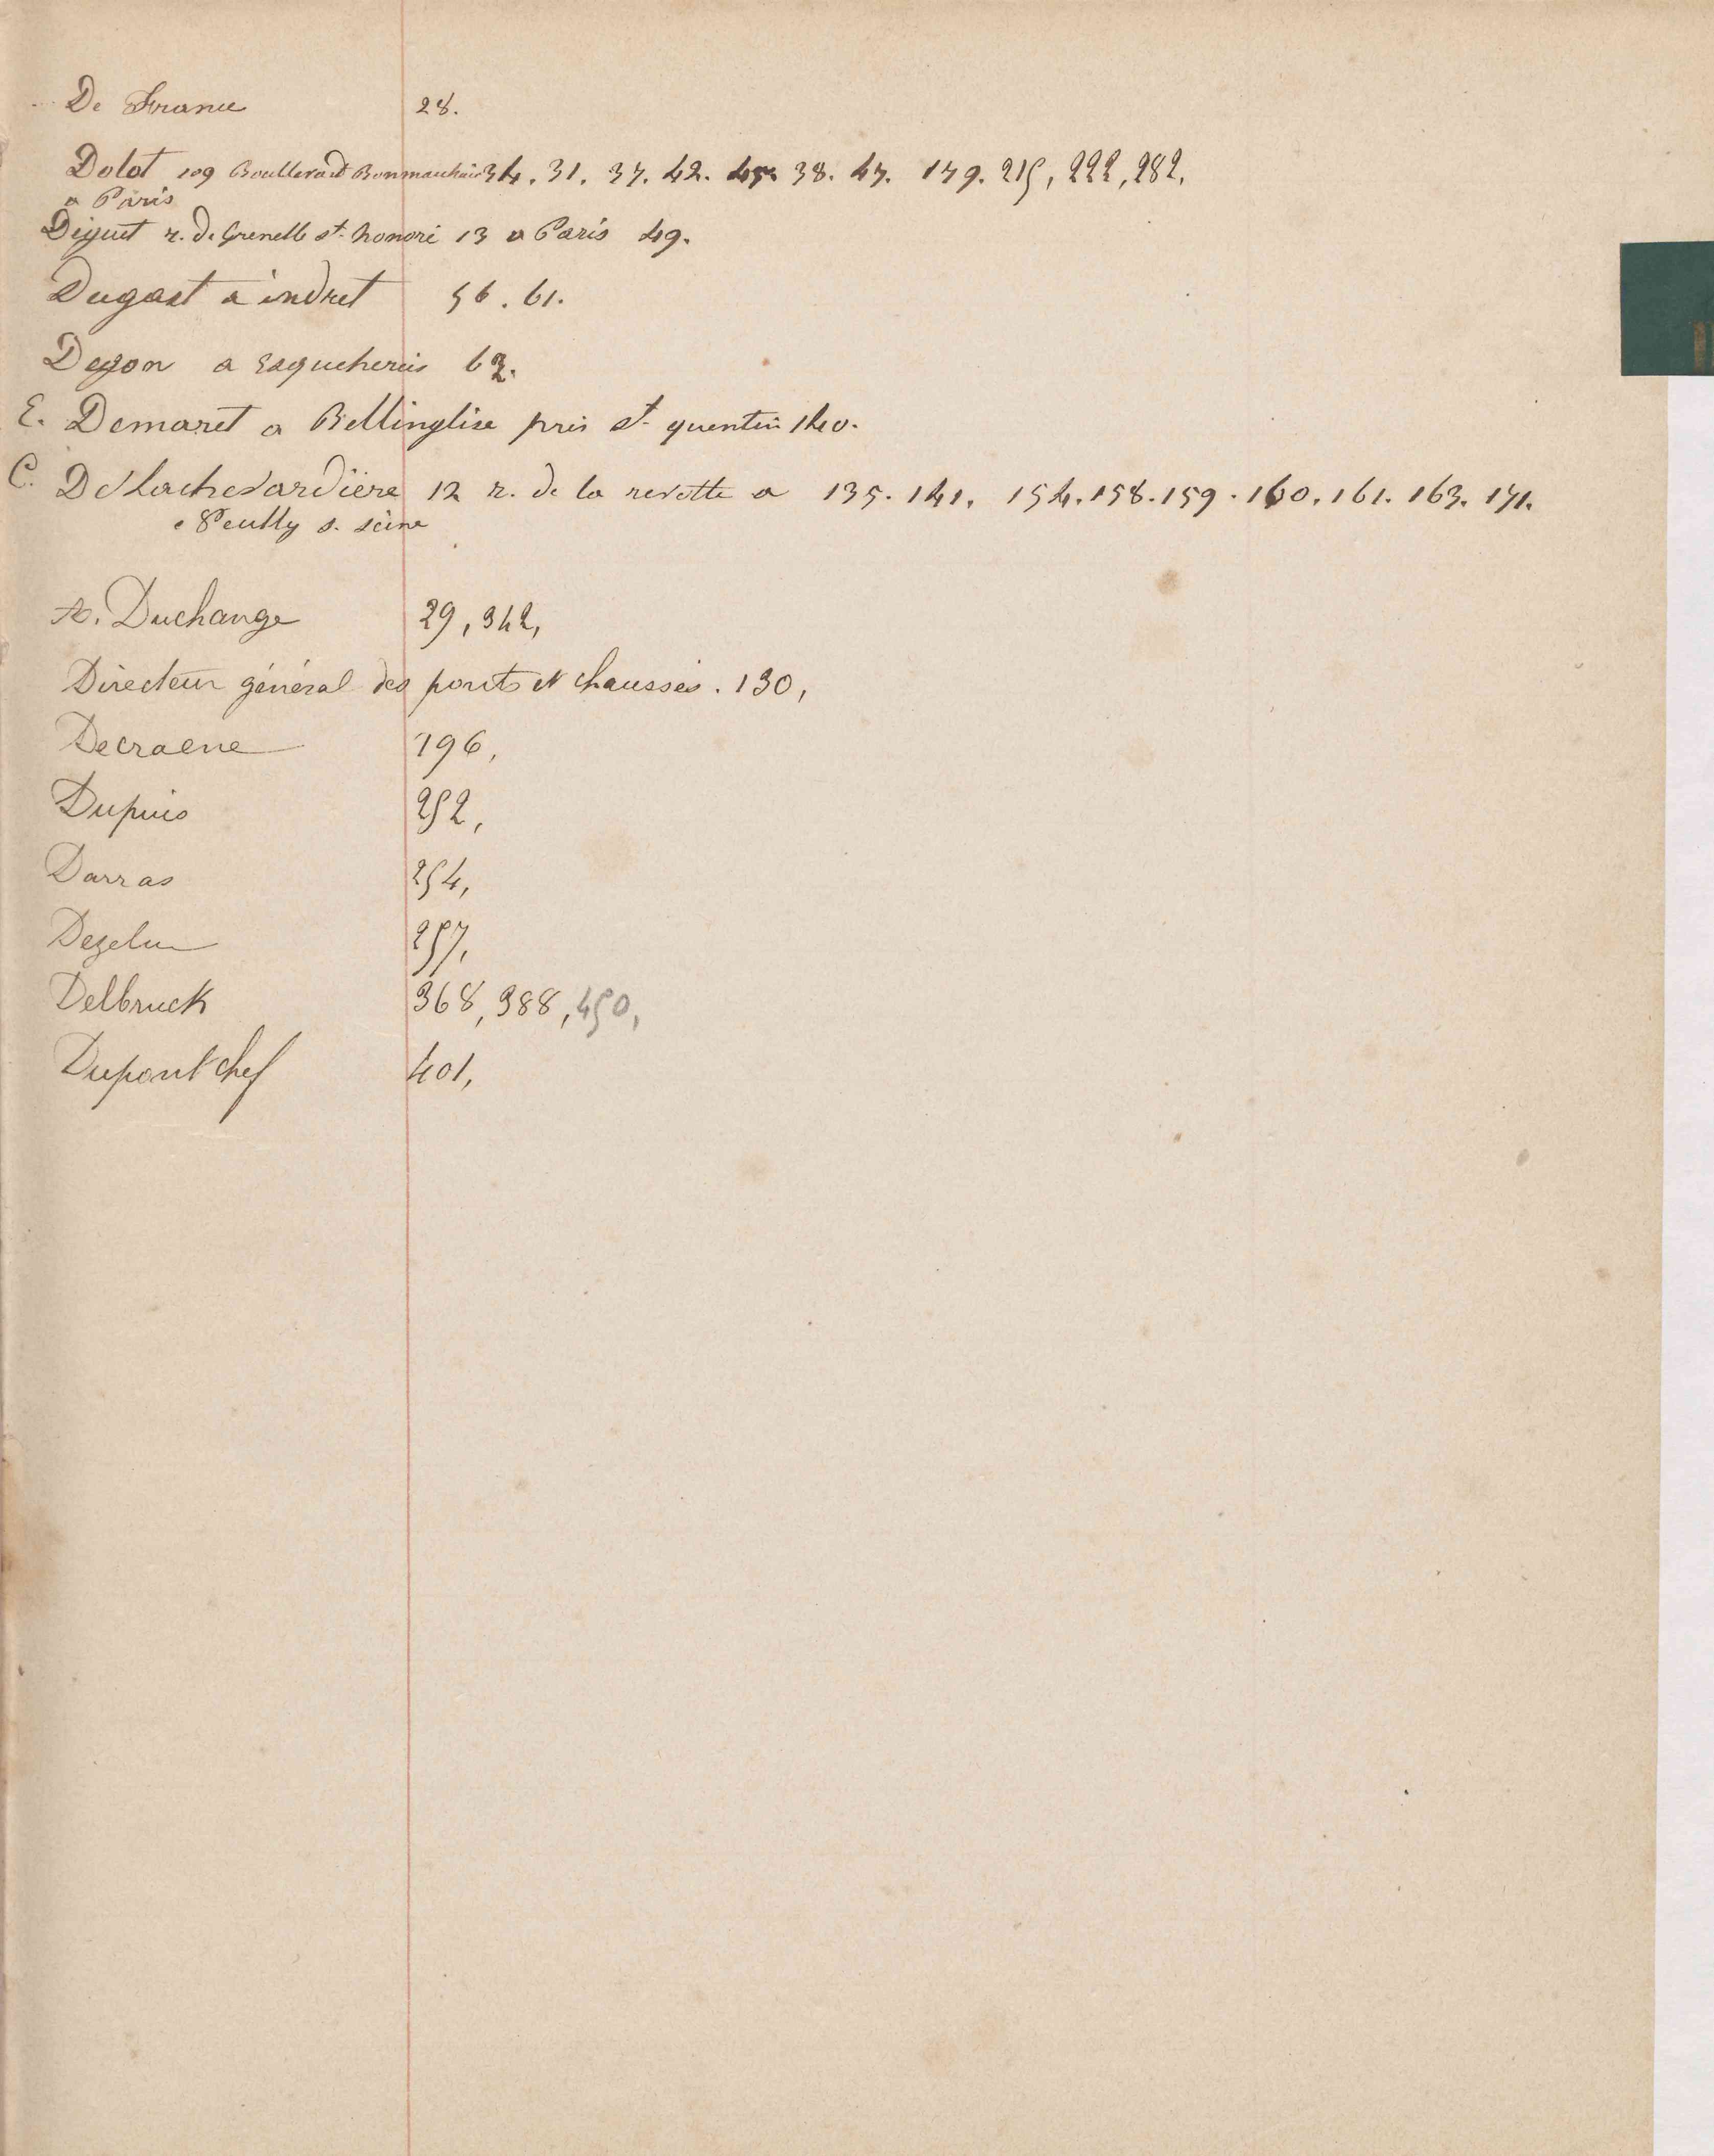 De France 28.
Dolot 109 Boullevard Bonmarchais 34. 31. 37. 42. 45. 38. 47. 179. 215, 222, 282,
a Paris
Diguet r. de Grenelle st. honoré 13 a Paris 49.
Dugast a indret 56. 61.
Dezon a Esqueheries 62.
E. Demaret a Bellinglise près St quentin 140.
C. De Lachevardière 12 r. de la revolte a 135. 141. 154. 158. 159. 160. 161. 163. 171.
Neuilly s. seine
A. Duchange 29, 342,
Directeur général des ponts et chaussées. 130,
Decraene 196,
Dupuis 252,
Darras 254,
Dezelu 257,
Delbruck 368, 388, 450,
Dupont chef 401,